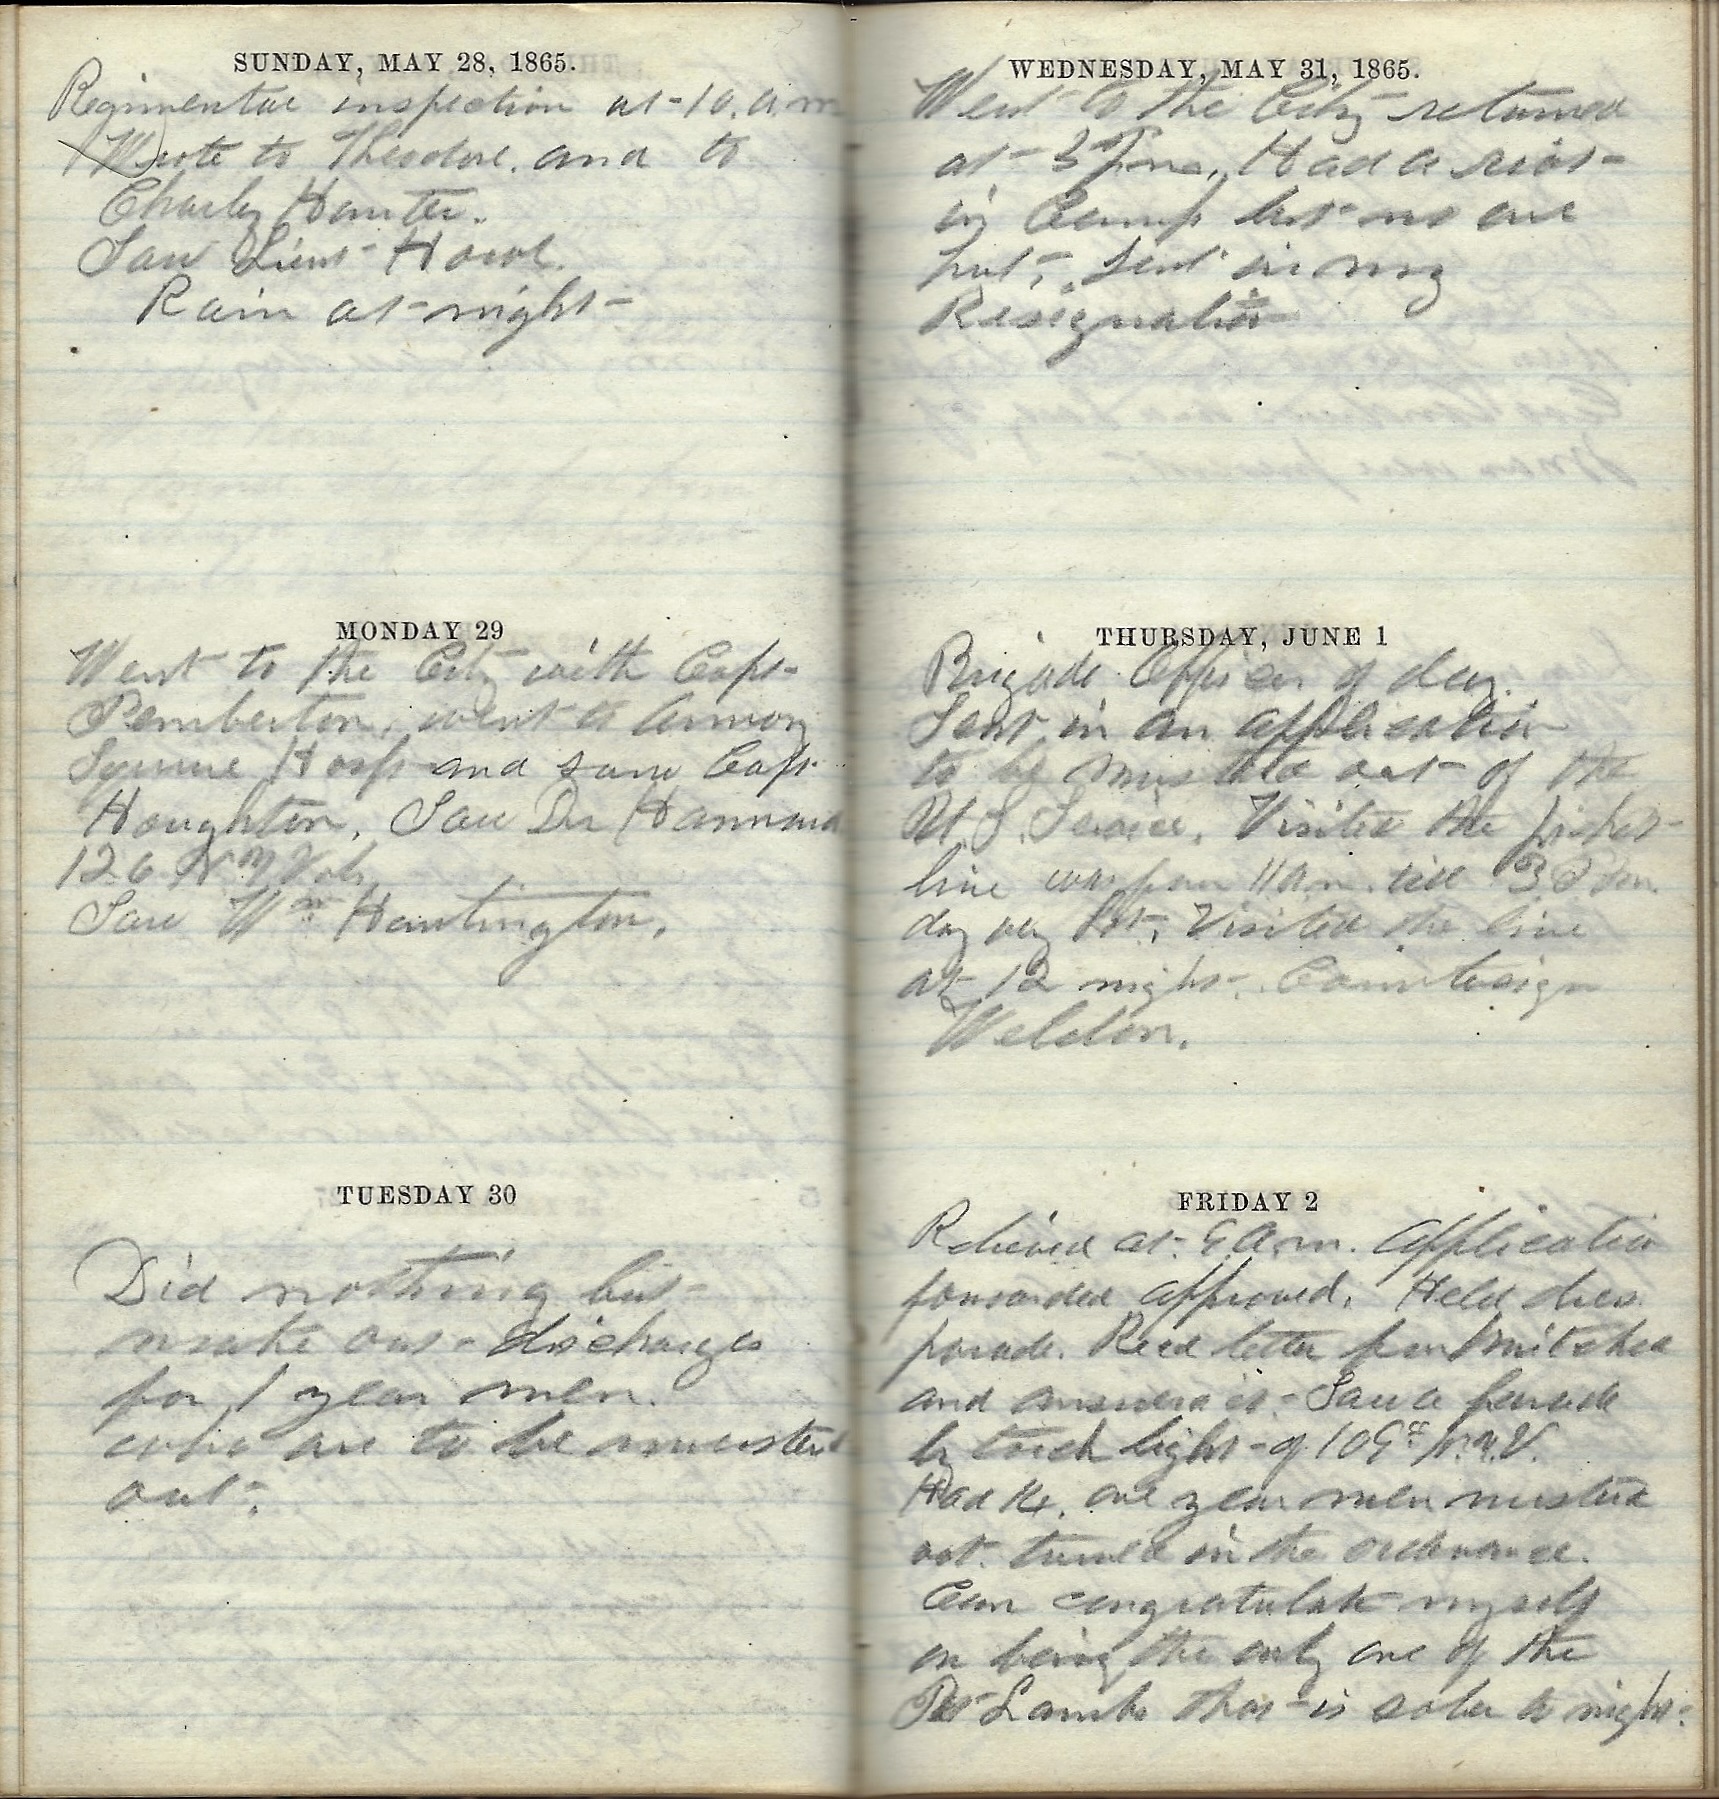 SUNDAY, MAY 28, 1865.
Regimental inspection at 10. a.m
Wrote to Theodore. and to
Charley Hunter.
Saw Lieut Howe.
Rain at night
MONDAY 29
Went to the City with Capt
Pemberton, went to Armory
Square Hosp and saw Capt
Houghton. Saw Dr Hammond
126 N Y Vols
Saw Wm Huntington.
TUESDAY 30
Did nothing but
make out discharges
for 1 year men.
who are to be mustered
out.
WEDNESDAY, MAY 31, 1865.
Went to the City returned
at 3 P m. Had a riot
in Camp but no one
hurt. Sent in my
Resignation
THURSDAY, JUNE 1
Brigade Officer of day.
Sent in an application
to be mustered out of the
U.S. Service. Visited the picket
line from 11 a m. till 3 P m.
day very hot. Visited the line
at 12 night. Countersign
Weldon.
FRIDAY 2
Relieved at 9 a.m. Application
forwarded approved. Held dress
parade. Recd letter from Mitchel
and answered it. Saw a parade
by torch light of 109th N.Y.V.
Had 14, one year men mustered
out. turned in the ordnance.
Can congratulate myself
on being the only one of the
Pet Lambs that is sober to night.